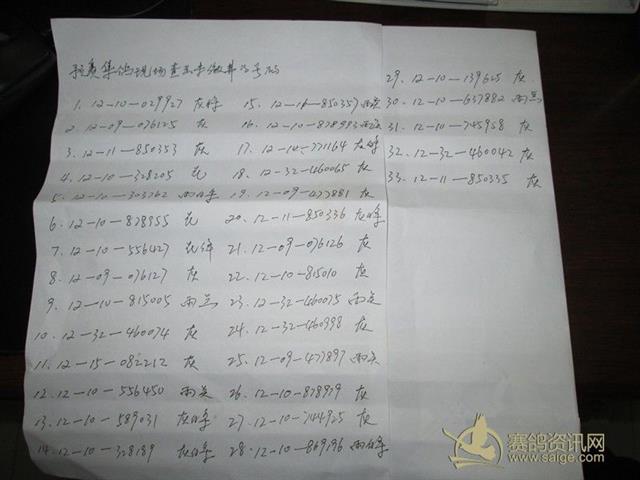 预赛集鸽现场查出未做弊的号码
1. 12-10-029927 灰
2. 12-09-076125 灰
3. 12-11-850353 灰
4. 12-10-328205 花
5. 12-10-303762 雨白条
6. 12-10-878955 花
7. 12-10-556427 花
8. 12-09-076127 灰
9. 12-10-815005 雨点
10. 12-32-460074 灰
11. 12-15-082212 灰
12. 12-10-556450 雨点
13. 12-10-589031 灰白条
14. 12-10-328189 灰白条
15. 12-11-850357 雨点
16. 12-10-878993 雨点
17. 12-10-771164 灰
18. 12-32-460065 灰
19. 12-09-477881 灰
20. 12-11-850336 灰白条
21. 12-09-076126 灰
22. 12-10-815010 灰
23. 12-32-460075 雨点
24. 12-32-460998 灰
25. 12-09-477897 雨点
26. 12-10-878979 灰
27. 12-10-744925 灰
28. 12-10-869196 雨白条
29. 12-10-139625 灰
30. 12-10-637882 雨点
31. 12-10-745958 灰
32. 12-32-460042 灰
33. 12-11-850335 灰
赛鸽资讯网
www.saige.com